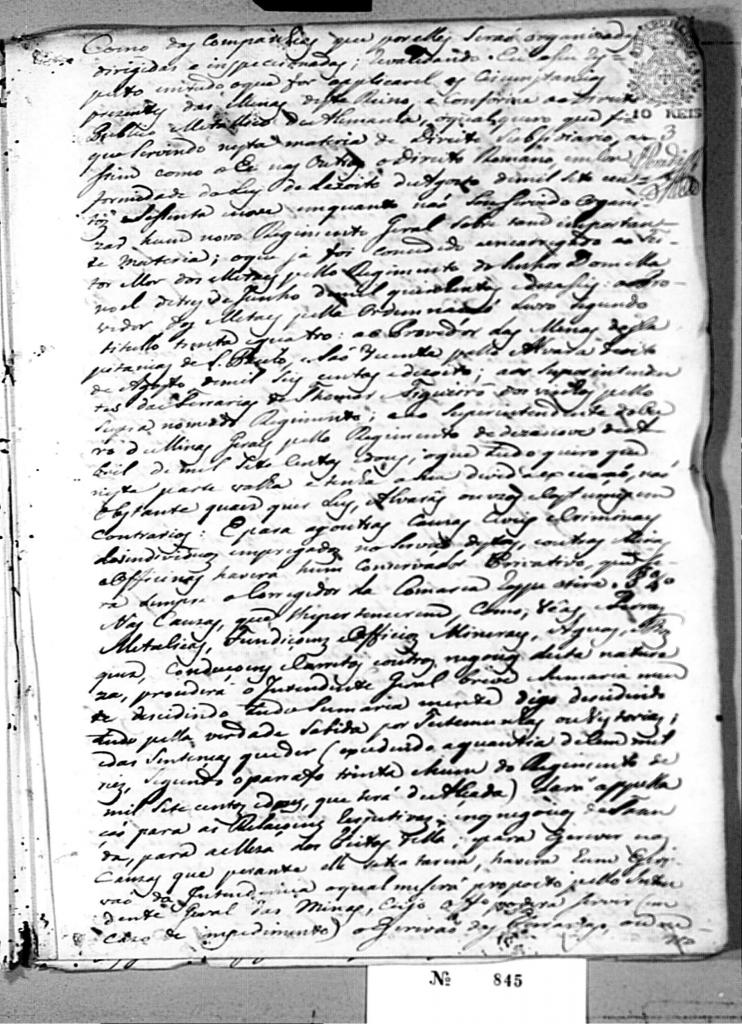 Como das Companhias que por elles seraõ organizadas
dirigidas e inspeccionadas; Revalidando
10 REIS
3
peito em tudo o que for applicavel as Circunstancias
prezentes das Minas deste Reino, e Conforme ao Direito
Publico Metallico da Alemanha, o qual quero que fi
que servindo nesta materia de Direito Subsidiario, as
sim como o he nas Outras o direito Romano, em Con
formidade da Ley de dezoito de Agosto de mil sete cen
tos Sessenta e nove em quanto naõ Sou Servido Organi
zar hum novo Regimento Geral Sobre tam importan
te materia; o que ja foi concedido e encarregado ao Fei
tor Mor dos Metaes pello Regimento do Senhor Dom Ma
noel de tres de Junho de mil quinhentos e dezaseis: ao Pro
vedor dos Metaes pella Ordennaçaõ Livro segundo
titullo trinta e quatro: ao Provedor das Minas das Ca
pitanias de S. Paulo e Saõ Vicente pello Alvará de oito
de Agosto de mil seis centos e dezoito; aos Superintenden
tes das Ferrarias de Thomar e Figueiró dos vinhos pello
supra nomeado Regimento; e ao Superintendente do Ou
ro de Minas Geraes pello Regimento de dezanove de A
bril de mil Sete Centos e dous; o que tudo quero que
nesta parte valha e tenha a sua devida execuçaõ, naõ
Obstante quaes quer Leys, Alvarás ou uzos e Costumes em
Contrario: E para as outras Cauzas Civeis e Criminaes
dos individuos empregados no Serviço destas, e outras Minas
e Officinas haverá hum Conservador Privativo, que se
rá sempre o Corregedor da Comarca
Nas Cauzas, que lhe pertencerem, Como, Veas, e Terras
Metalicas, Fundiçoens e Officios Mineraes, Agoas,
ques, Conducoens e Carretos e outros negocios desta nature
za, procederá o Intendente Geral breve e Sumaria men
te descidindo tudo Sumaria mente digo descidindo
tudo pella verdade Sabida por Testemunhas ou Vistorias;
e das Sentenças que der (excedendo a quantia de Cem mil
reis, Segundo o parrafo trinta e hum do Regimento de
mil Sete centos e dous, que será duplicada) dará appella
çaõ para as Relaçoens respectivas, e nos negocios de Fazen
da, para a Meza dos Feitos della; e para Escrever nas
Cauzas que perante elle se tratarem, haverá hum Escri
vaõ da Intendencia o qual me será proposto pello Inten
dente Geral das Minas, cujo Officio poderá servir (em
cazo de impedimento) o Escrivaõ das
Nº 845